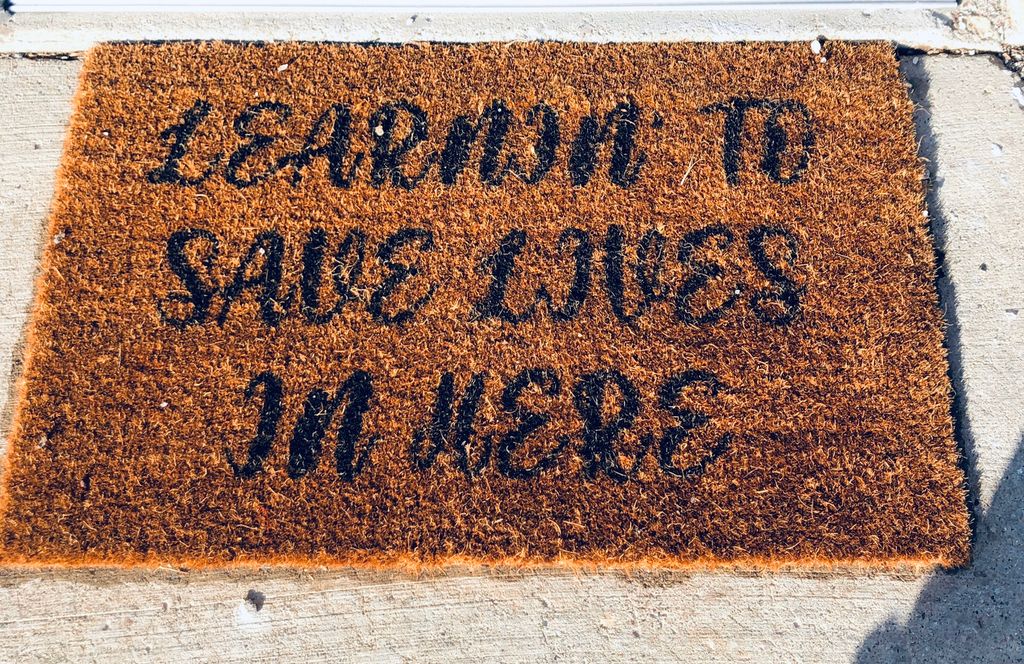 LEARNIN' TO
SAVE LIVES
IN HERE